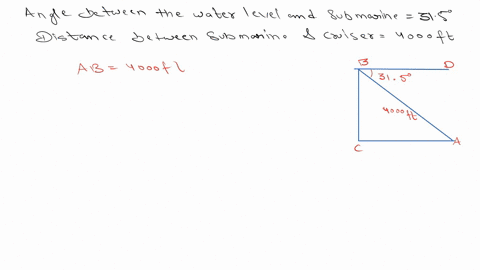 Angle between the water level and submarine = 31.5°
Distance between submarine & cruiser = 4000ft
AB = 4000ft
B D
31.5°
4000ft
C A